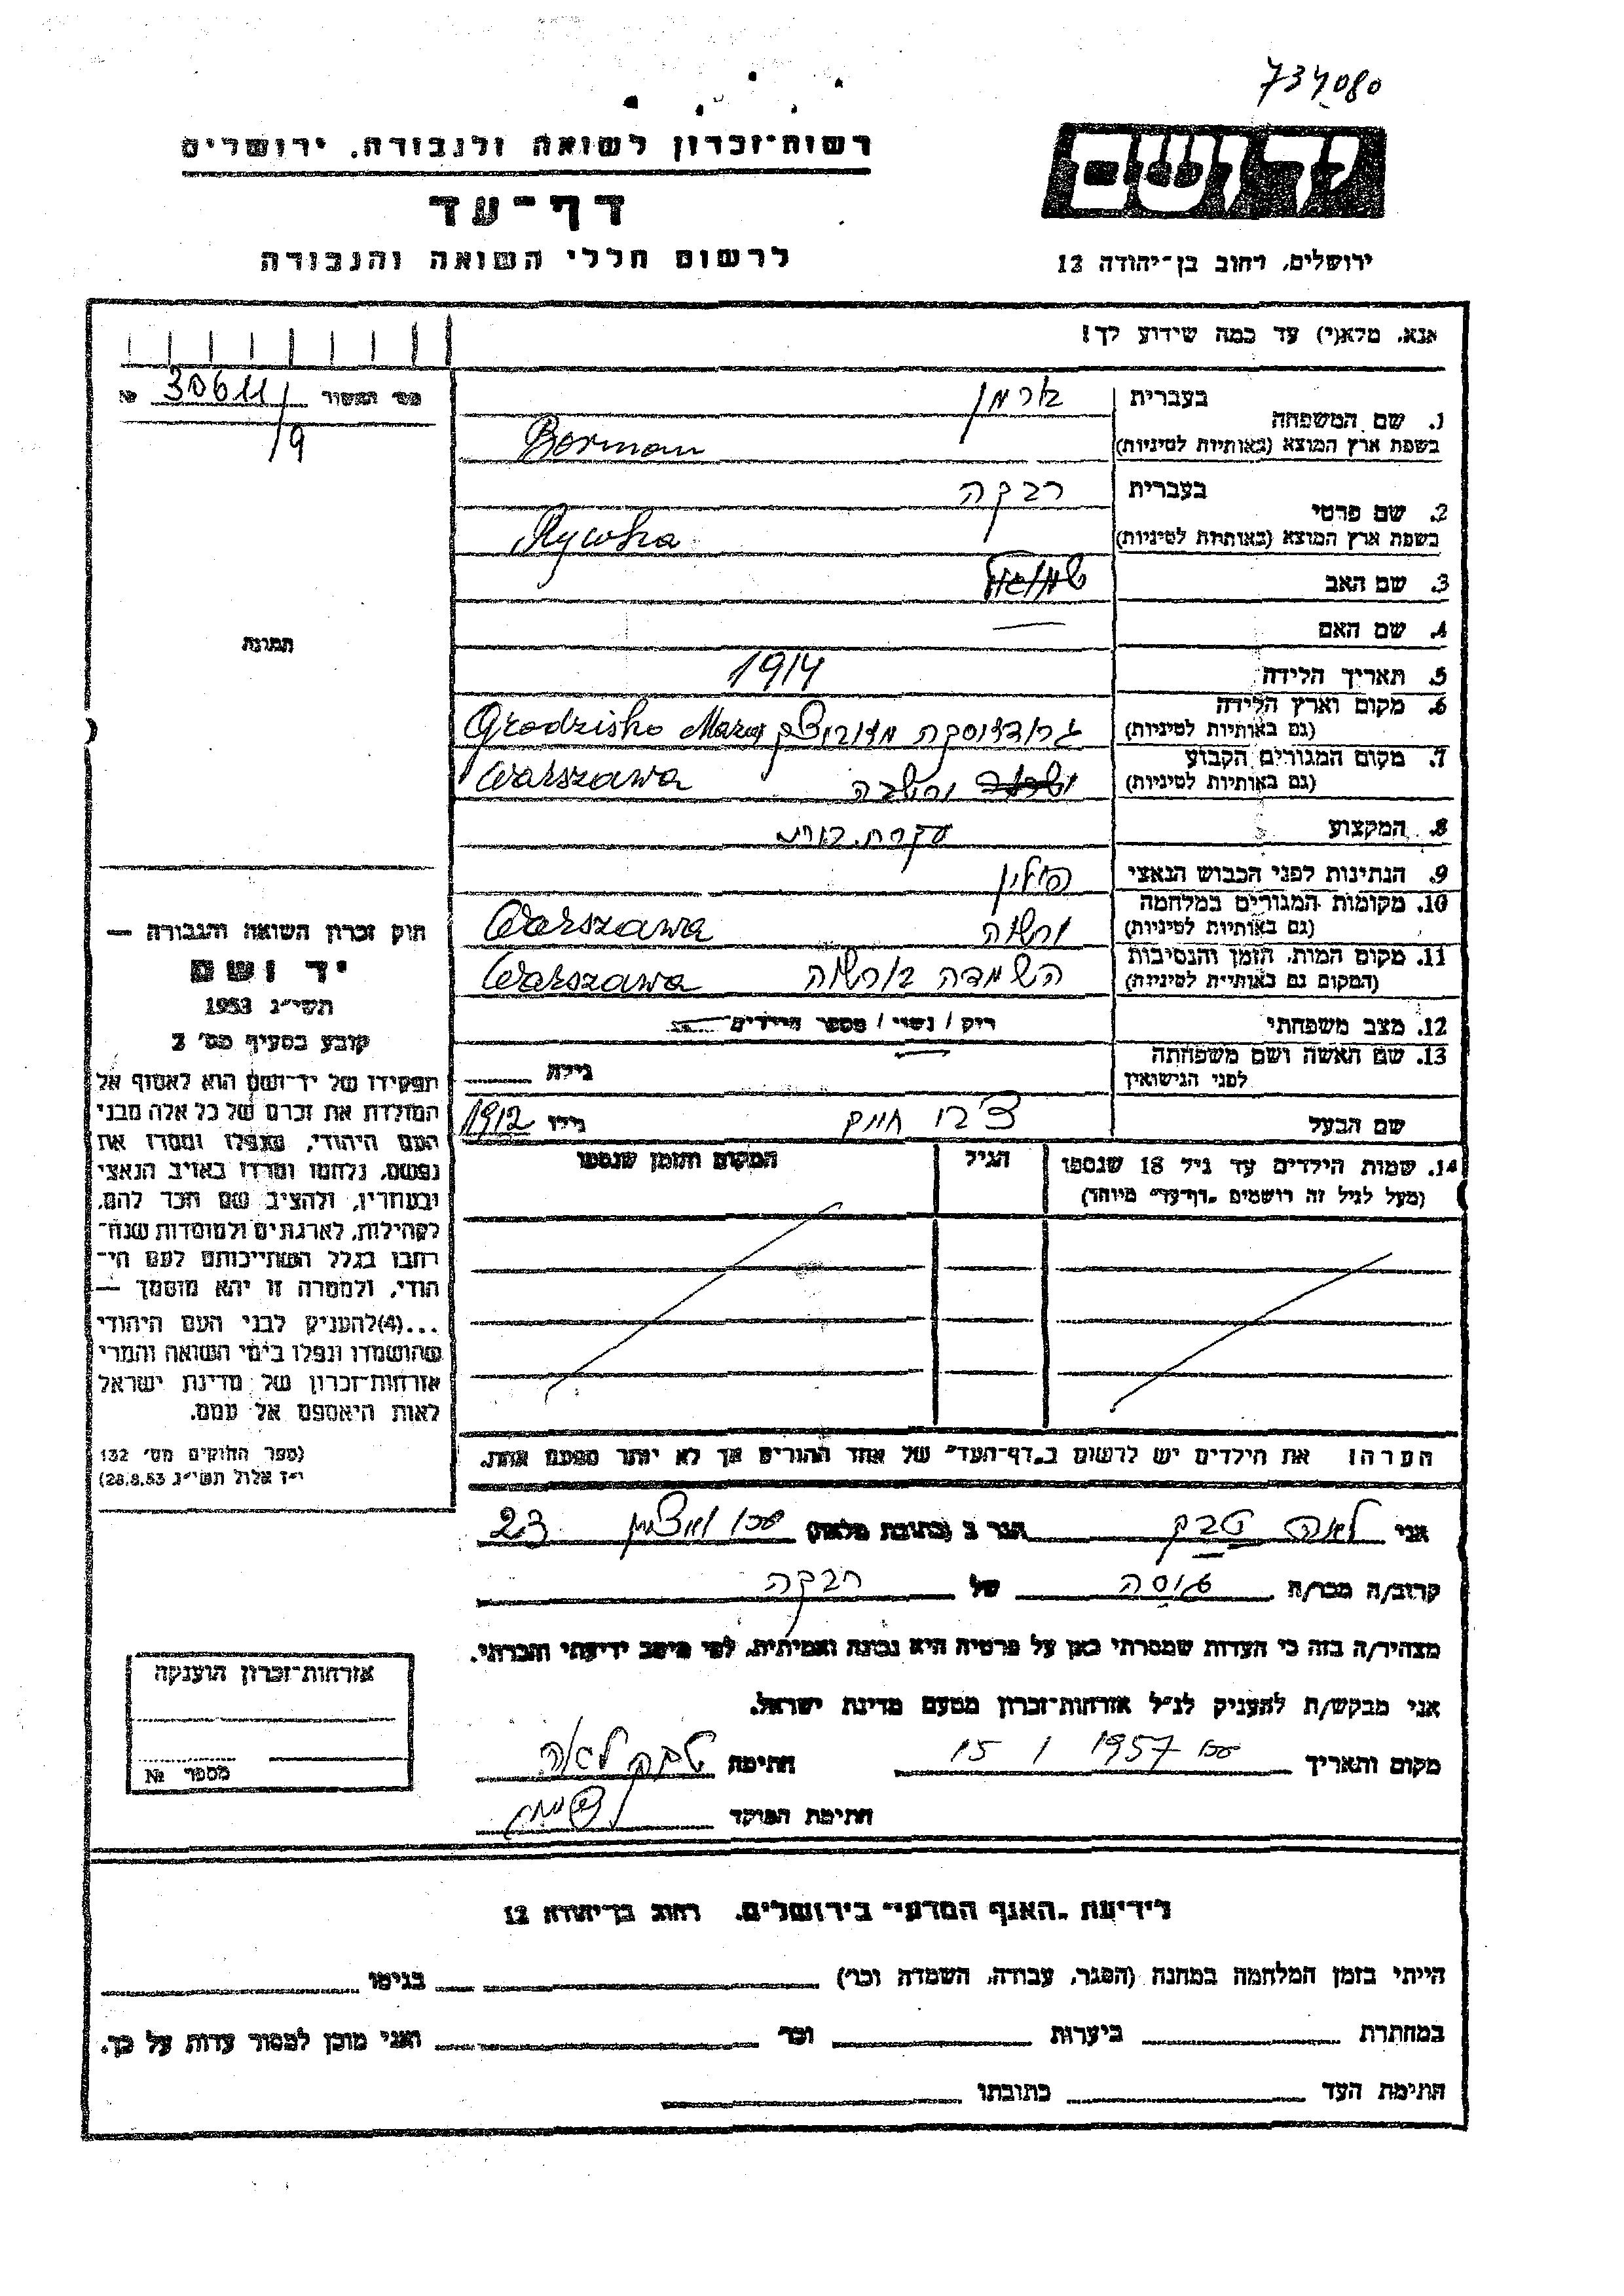 734080
רשות־זכרון לשואה ולגבורה, ירושלים
דף־עד
לרשום חללי השואה והגבורה
יד ושם
ירושלים, רחוב בן־יהודה 12
אנא, מלא(י) עד כמה שידוע לך!
מס׳ המשור 30611/9 №
1. שם המשפחה
בעברית בורמן
בשפת ארץ המוצא (באותיות לטיניות) Borman
2. שם פרטי
בעברית רבקה
בשפת ארץ המוצא (באותיות לטיניות) Rywka
3. שם האב
4. שם האם —
5. תאריך הלידה 1914
6. מקום וארץ הלידה
(גם באותיות לטיניות) Grodzisko
7. מקום המגורים הקבוע
(גם באותיות לטיניות) Warszawa
8. המקצוע עקרת בית
9. הנתינות לפני הכבוש הנאצי פולין
10. מקומות המגורים במלחמה
(גם באותיות לטיניות) ורשה Warszawa
11. מקום המות, הזמן והנסיבות
(המקום גם באותיות לטיניות) השמדה בורשה Warszawa
12. מצב משפחתי
רוק / נשוי / מספר הילדים
13. שם האשה ושם משפחתה
לפני הנישואין
גילה
שם הבעל
גילו 1912
14. שמות הילדים עד גיל 18 שנספו
(מעל לגיל זה רושמים „דף־עד״ מיוחד)
הגיל
המקום והזמן שנספו
הערה: את הילדים יש לרשום ב„דף־העד״ של אחד ההורים אך לא יותר מפעם אחת.
תמונה
חוק זכרון השואה והגבורה —
יד ושם
תשי״ג 1953
קובע בסעיף מס׳ 2
תפקידו של יד־ושם הוא לאסוף אל
המולדת את זכרם של כל אלה מבני
העם היהודי, שנפלו ומסרו את
נפשם, נלחמו ומרדו באויב הנאצי
ובעוזריו, ולהציב שם וזכר להם,
לקהילות, לארגונים ולמוסדות שנח־
רבו בגלל השתייכותם לעם הי־
הודי, ולמטרה זו יהא מוסמך —
...(4)להעניק לבני העם היהודי
שהושמדו ונפלו בימי השואה והמרי
אזרחות־זכרון של מדינת ישראל
לאות היאספם אל עמם.
(ספר החוקים מס׳ 132
י״ז אלול תשי״ג 28.8.53)
אני לאה טבק הגר ב (כתובת מלאה) 23
קרוב/ה מכר/ה גיסה של רבקה
מצהיר/ה בזה כי העדות שמסרתי כאן על פרטיה היא נכונה ואמיתית, לפי מיטב ידיעתי והכרתי.
אני מבקש/ת להעניק לנ״ל אזרחות־זכרון מטעם מדינת ישראל.
מקום ותאריך 1957 1 15 חתימה טבק לאה
חתימת הפוקד
אזרחות־זכרון הוענקה
מספר №
לידיעת „האגף המדעי״ בירושלים, רחוב בן־יהודה 12
הייתי בזמן המלחמה במחנה (הסגר, עבודה, השמדה וכו׳) בגיטו
במחתרת ביערות וכו׳ ואני מוכן למסור עדות על כך.
חתימת העד כתובתו